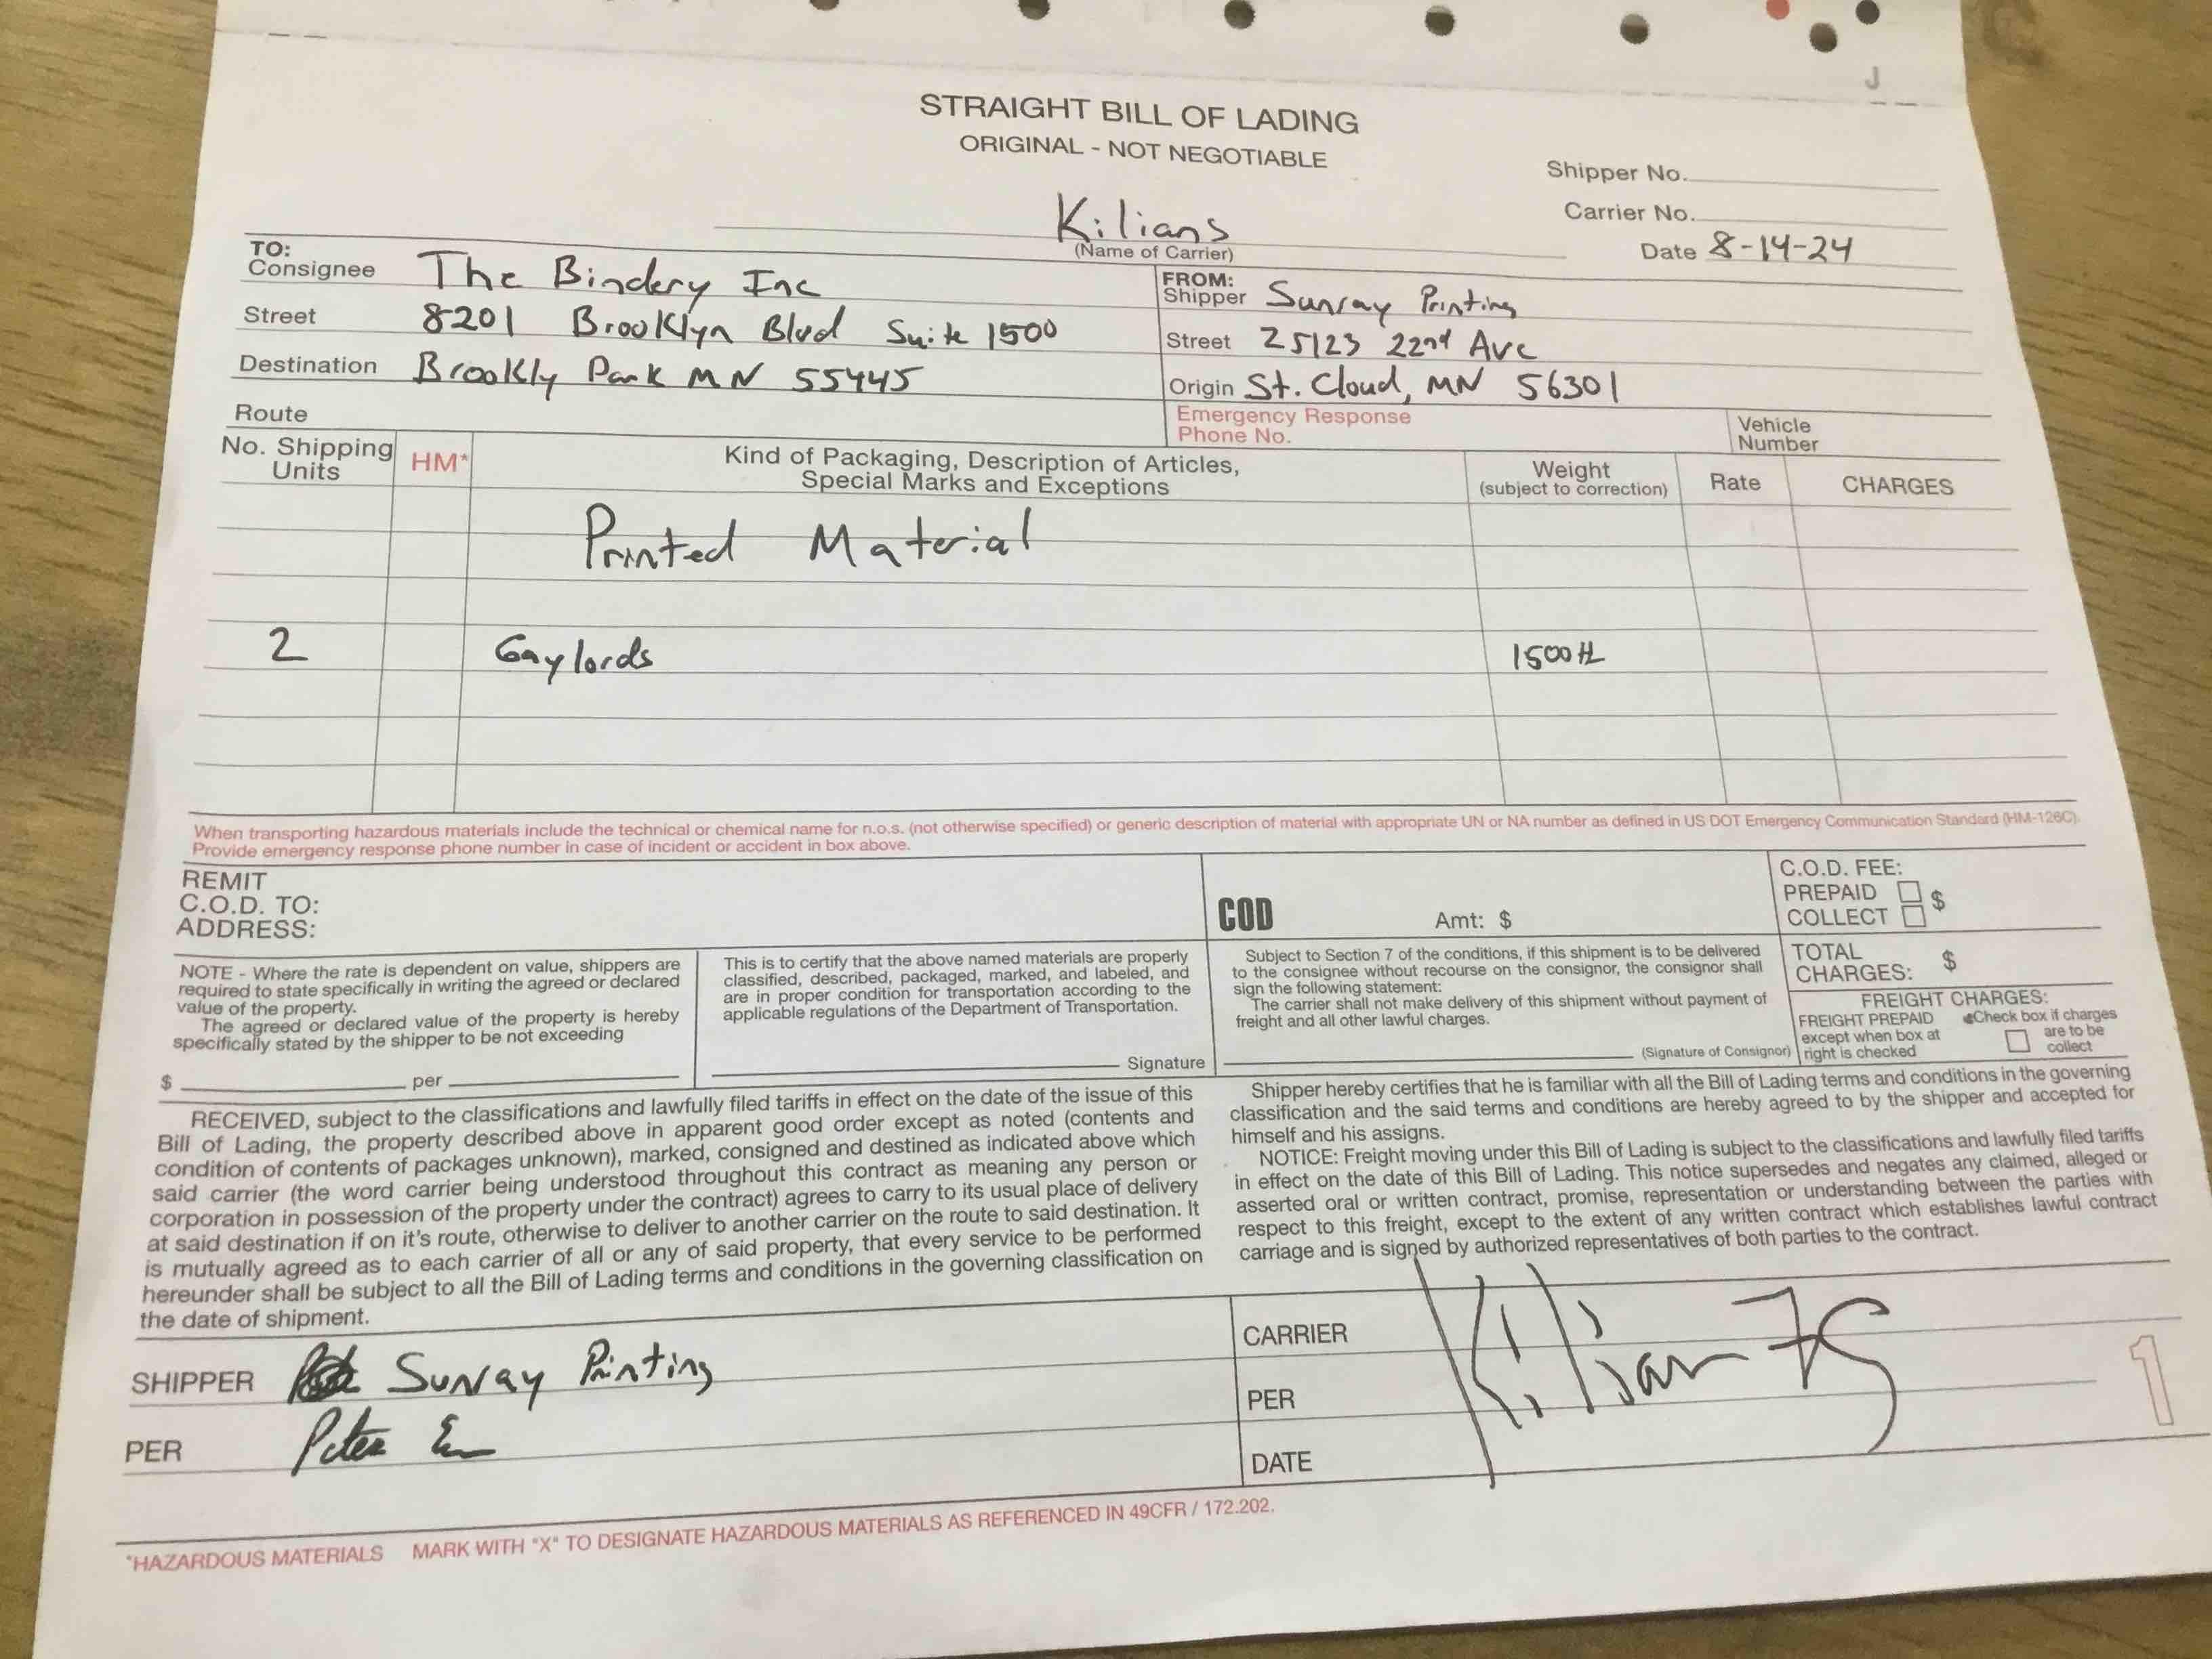 J
STRAIGHT BILL OF LADING
ORIGINAL - NOT NEGOTIABLE
Shipper No.
Carrier No.
Kilians
(Name of Carrier)
Date 8-14-24
TO:
Consignee The Bindery Inc
Street 8201 Brooklyn Blvd Suite 1500
Destination Brookly Park MN 55445
FROM:
Shipper Sunray Printing
Street 25123 22nd Ave
Origin St. Cloud, MN 56301
Route
Emergency Response
Phone No.
Vehicle
Number
No. Shipping
Units
HM*
Kind of Packaging, Description of Articles,
Special Marks and Exceptions
Weight
(subject to correction)
Rate
CHARGES
Printed Material
2 Gaylords 1500#
When transporting hazardous materials include the technical or chemical name for n.o.s. (not otherwise specified) or generic description of material with appropriate UN or NA number as defined in US DOT Emergency Communication Standard (HM-126C).
Provide emergency response phone number in case of incident or accident in box above.
REMIT
C.O.D. TO:
ADDRESS:
COD
Amt: $
C.O.D. FEE:
PREPAID $
COLLECT
NOTE - Where the rate is dependent on value, shippers are
required to state specifically in writing the agreed or declared
value of the property.
The agreed or declared value of the property is hereby
specifically stated by the shipper to be not exceeding
$ per
This is to certify that the above named materials are properly
classified, described, packaged, marked, and labeled, and
are in proper condition for transportation according to the
applicable regulations of the Department of Transportation.
Signature
Subject to Section 7 of the conditions, if this shipment is to be delivered
to the consignee without recourse on the consignor, the consignor shall
sign the following statement:
The carrier shall not make delivery of this shipment without payment of
freight and all other lawful charges.
(Signature of Consignor)
TOTAL
CHARGES: $
FREIGHT CHARGES:
FREIGHT PREPAID
except when box at
right is checked
Check box if charges
are to be
collect
RECEIVED, subject to the classifications and lawfully filed tariffs in effect on the date of the issue of this
Bill of Lading, the property described above in apparent good order except as noted (contents and
condition of contents of packages unknown), marked, consigned and destined as indicated above which
said carrier (the word carrier being understood throughout this contract as meaning any person or
corporation in possession of the property under the contract) agrees to carry to its usual place of delivery
at said destination if on it's route, otherwise to deliver to another carrier on the route to said destination. It
is mutually agreed as to each carrier of all or any of said property, that every service to be performed
hereunder shall be subject to all the Bill of Lading terms and conditions in the governing classification on
the date of shipment.
Shipper hereby certifies that he is familiar with all the Bill of Lading terms and conditions in the governing
classification and the said terms and conditions are hereby agreed to by the shipper and accepted for
himself and his assigns.
NOTICE: Freight moving under this Bill of Lading is subject to the classifications and lawfully filed tariffs
in effect on the date of this Bill of Lading. This notice supersedes and negates any claimed, alleged or
asserted oral or written contract, promise, representation or understanding between the parties with
respect to this freight, except to the extent of any written contract which establishes lawful contract
carriage and is signed by authorized representatives of both parties to the contract.
SHIPPER Sunray Printing
PER Peter
CARRIER
PER
DATE
1
*HAZARDOUS MATERIALS MARK WITH "X" TO DESIGNATE HAZARDOUS MATERIALS AS REFERENCED IN 49CFR / 172.202.